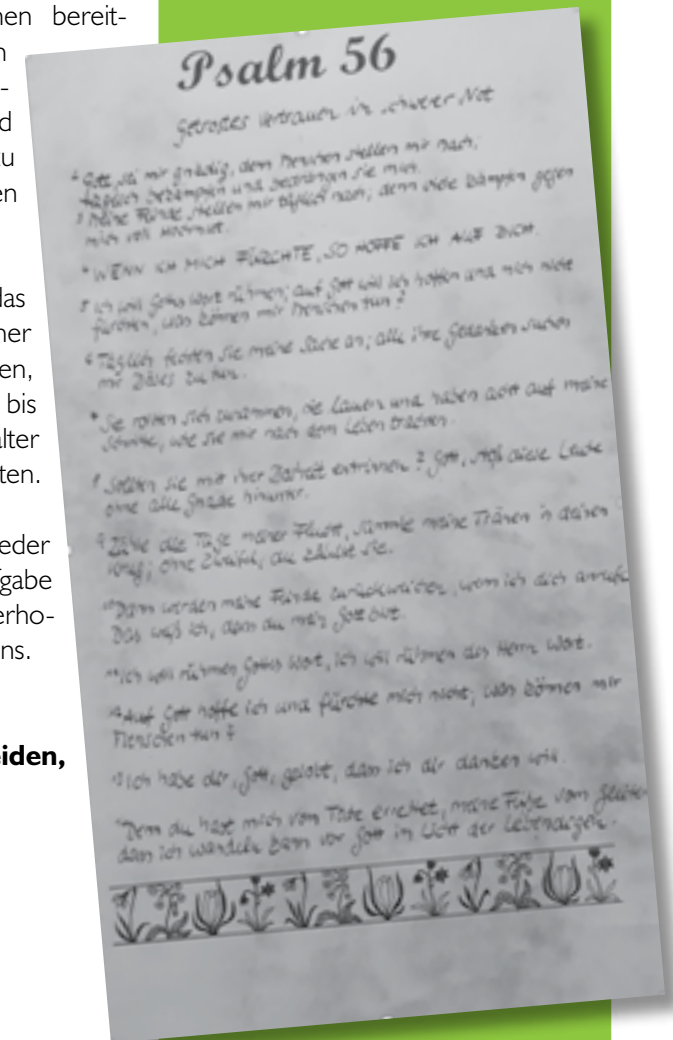 nen bereit-
n
-
d
zu
en
das
ner
en,
bis
alter
ten.
eder
fgabe
erho-
ns.
eiden,
Psalm 56
Getrostes Vertrauen in schwerer Not
2 Gott, sei mir gnädig, denn Menschen stellen mir nach;
täglich bekämpfen und bedrängen sie mich.
3 Meine Feinde stellen mir täglich nach; denn viele kämpfen gegen
mich voll Hochmut.
4 WENN ICH MICH FÜRCHTE, SO HOFFE ICH AUF DICH.
5 Ich will Gottes Wort rühmen; auf Gott will ich hoffen und mich nicht
fürchten; was können mir Menschen tun?
6 Täglich fechten sie meine Sache an; alle ihre Gedanken suchen
mir Böses zu tun.
7 Sie rotten sich zusammen, sie lauern und haben acht auf meine
Schritte, wie sie mir nach dem Leben trachten.
8 Sollten sie mit ihrer Bosheit entrinnen? Gott, stoß diese Leute
ohne alle Gnade hinunter.
9 Zähle die Tage meiner Flucht, sammle meine Tränen in deinen
Krug; ohne Zweifel, du zählst sie.
10 Dann werden meine Feinde zurückweichen, wenn ich dich anrufe.
Das weiß ich, dass du mein Gott bist.
11 Ich will rühmen Gottes Wort, ich will rühmen des Herrn Wort.
12 Auf Gott hoffe ich und fürchte mich nicht; was können mir
Menschen tun?
13 Ich habe dir, Gott, gelobt, dass ich dir danken will.
14 Denn du hast mich vom Tode errettet, meine Füße vom Gleiten,
dass ich wandeln kann vor Gott im Licht der Lebendigen.